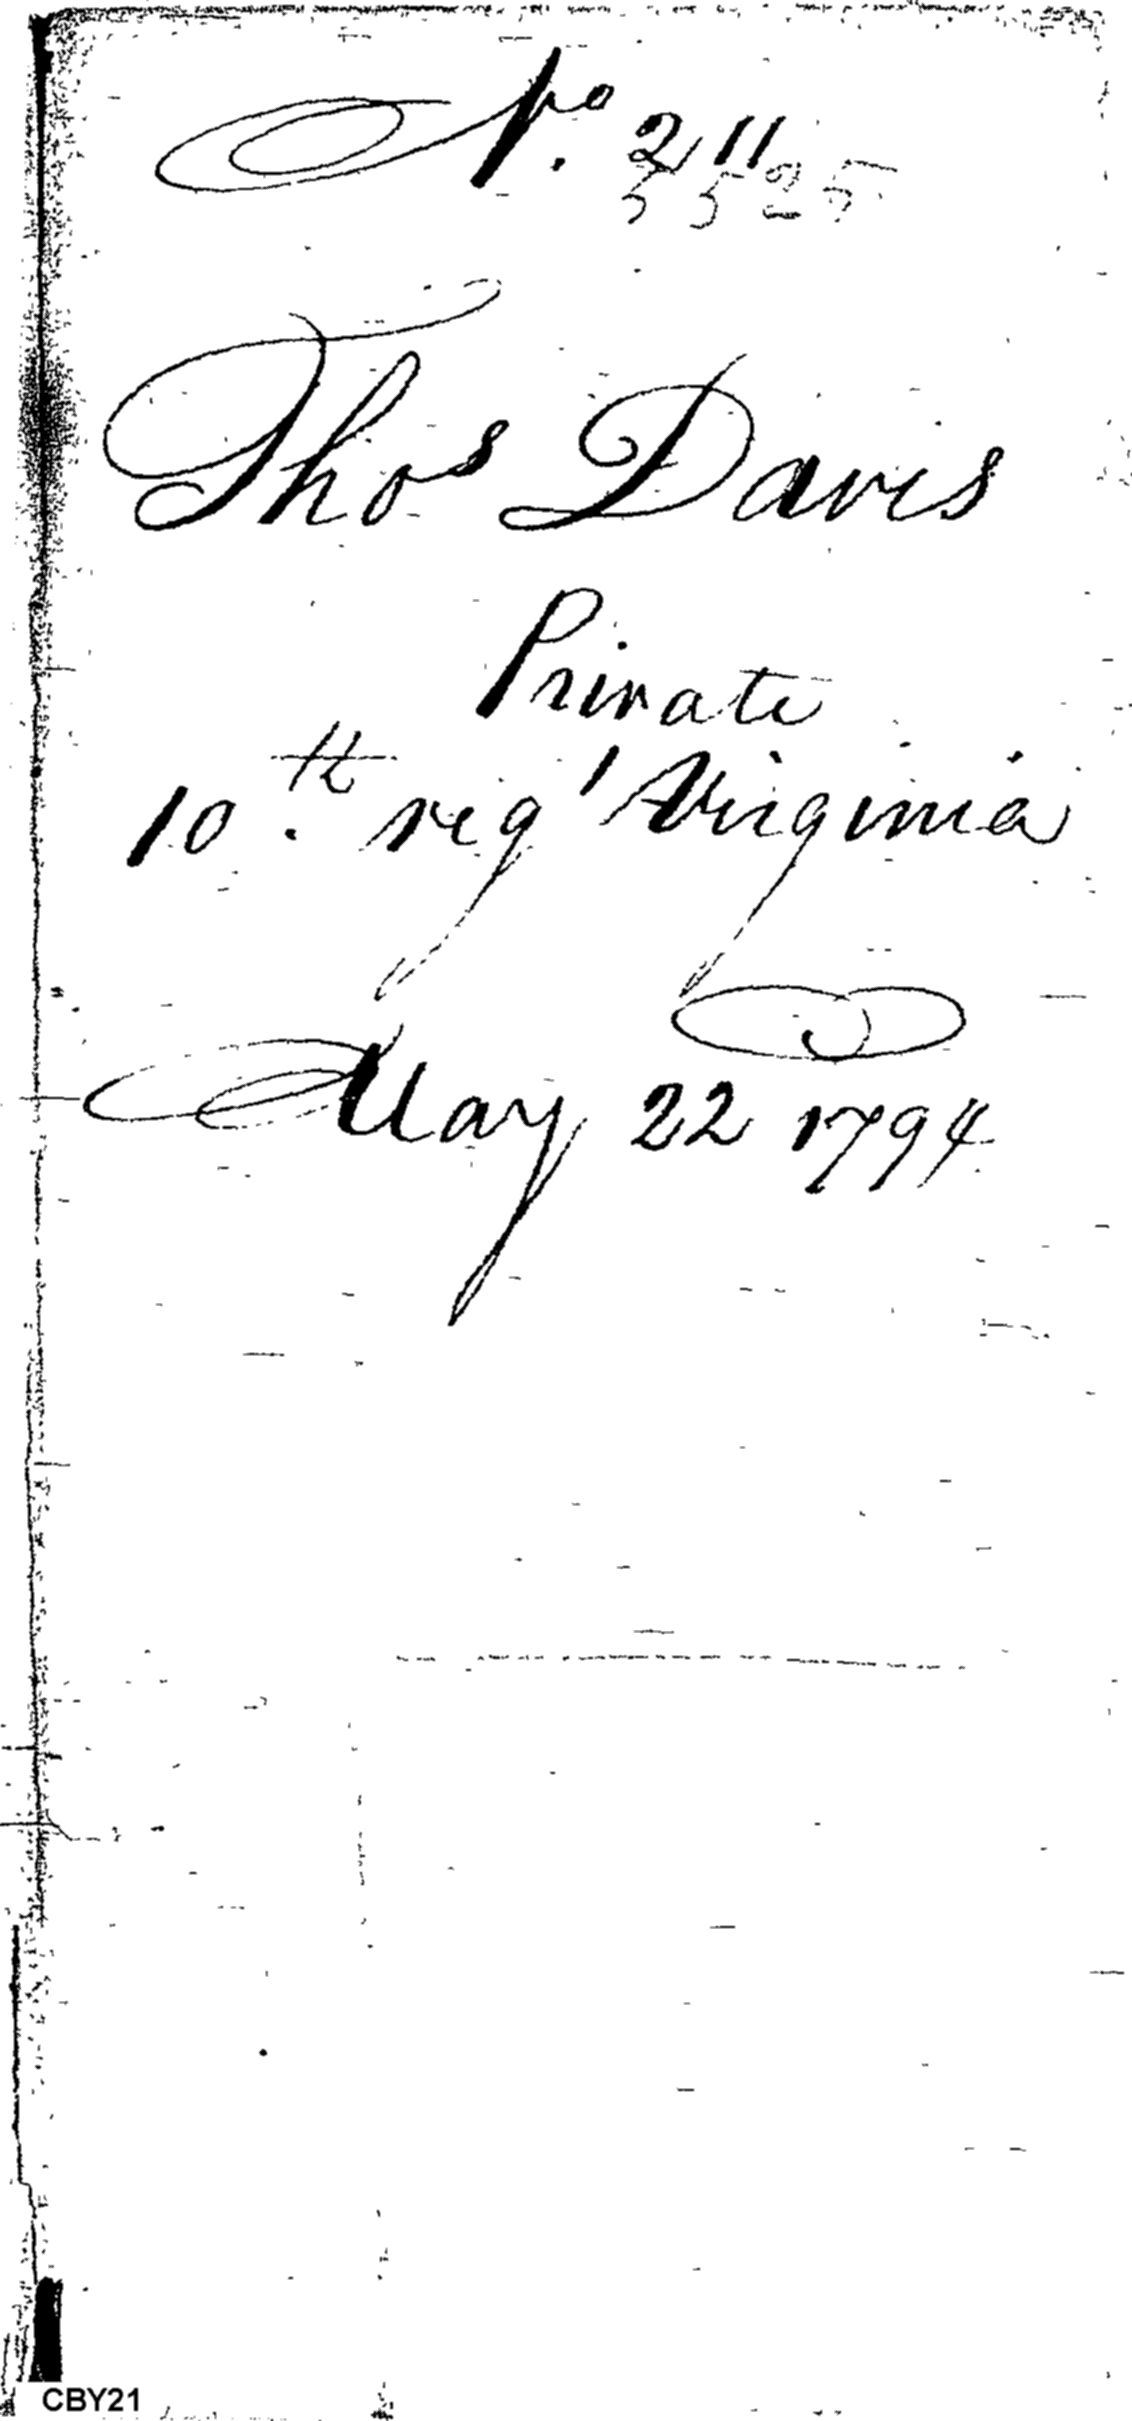 No. 211
5525
Thos Davis
Private
10.th reg' Virginia
May 22 1794
CBY21